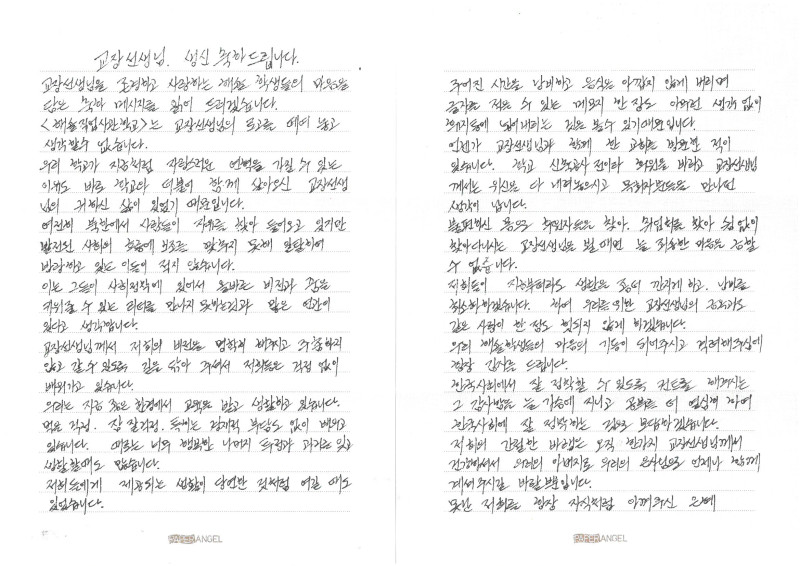 교장선생님, 생신 축하드립니다.
교장선생님을 존경하고 사랑하는 학생들의 마음을
담은 축하 메시지를 읽어 드리겠습니다.
<해솔직업사관학교>는 교장선생님의 노고를 떼여 놓고
생각할수 없습니다.
우리 학교가 지금처럼 자랑스러운 면역을 가질 수 있는
이유도 바로 학교와 더불어 함께 살아오신 교장선생
님의 귀하신 삶이 있었기 때문입니다.
여전히 북한에서 사람들이 자유를 찾아 들어오고 있지만
발전된 사회의 흐름에 보조를 맞추지 못해 일탈하여
방황하고 있는 이들이 적지 않습니다.
이는 그들이 사회정착에 있어서 올바른 비전과 꿈을
키워줄 수 있는 리더를 만나지 못하는것과 많은 연관이
있다고 생각합니다.
교장선생님께서 저희의 비전을 명확히 해주시고 주춤하지
않고 갈 수 있도록 길을 닦아 주셔서 저희들은 걱정 없이
배워가고 있습니다.
우리는 지금 좋은 환경에서 교육을 받고 생활하고 있습니다.
먹을 걱정, 잠 잘걱정, 돈에는 경제적 부담도 없이 배우고
있습니다. 때로는 너무 행복한 나머지 특정과 과거를 잊고
생활할때도 많습니다.
저희들에게 제공되는 생활이 당연한 것처럼 여길 때도
있었습니다.
PAPER ANGEL
주어진 시간을 낭비하고 음식을 아깝지 않게 버리며
글자를 적을 수 있는 메모지 한 장도 아무런 생각 없이
휴지통에 넣어버리는 것을 볼수 있기때문입니다.
언젠가 교장선생님과 함께 한 교회를 방문한 적이
있습니다. 학교 신축공사 전이라 후원을 바라고 교장선생님
께서는 위신을 다 내려놓으시고 목회자분들을 만나던
생각이 납니다.
불편하신 몸으로 후원자들을 찾아, 취업처를 찾아 쉼 없이
찾아다니시는 교장선생님을 볼 때면 늘 죄송한 마음을 금할
수 없습니다.
저희들이 지금부터라도 생활은 좀더 깐지게 하고, 낭비를
최소화하겠습니다. 하여 우리를 위한 교장선생님의 공로와도
같은 사랑이 한 점도 헛되지 않게 하겠습니다.
우리 해솔학생들의 마음의 기둥이 되어주시고 격려해주심에
항상 감사를 드립니다.
한국사회에서 잘 정착할 수 있도록 컨트롤 해주시는
그 감사함을 늘 가슴에 지니고 공부를 더 열심히 하여
한국사회에 잘 정착하는 것으로 보답하겠습니다.
저희의 간절한 바램은 오직 한가지 교장선생님께서
건강하셔서 우리의 아버지로 우리의 은사님으로 언제나 함께
계셔주시길 바랄뿐입니다.
못난 저희를 항상 자식처럼 아껴주신 은혜
PAPER ANGEL